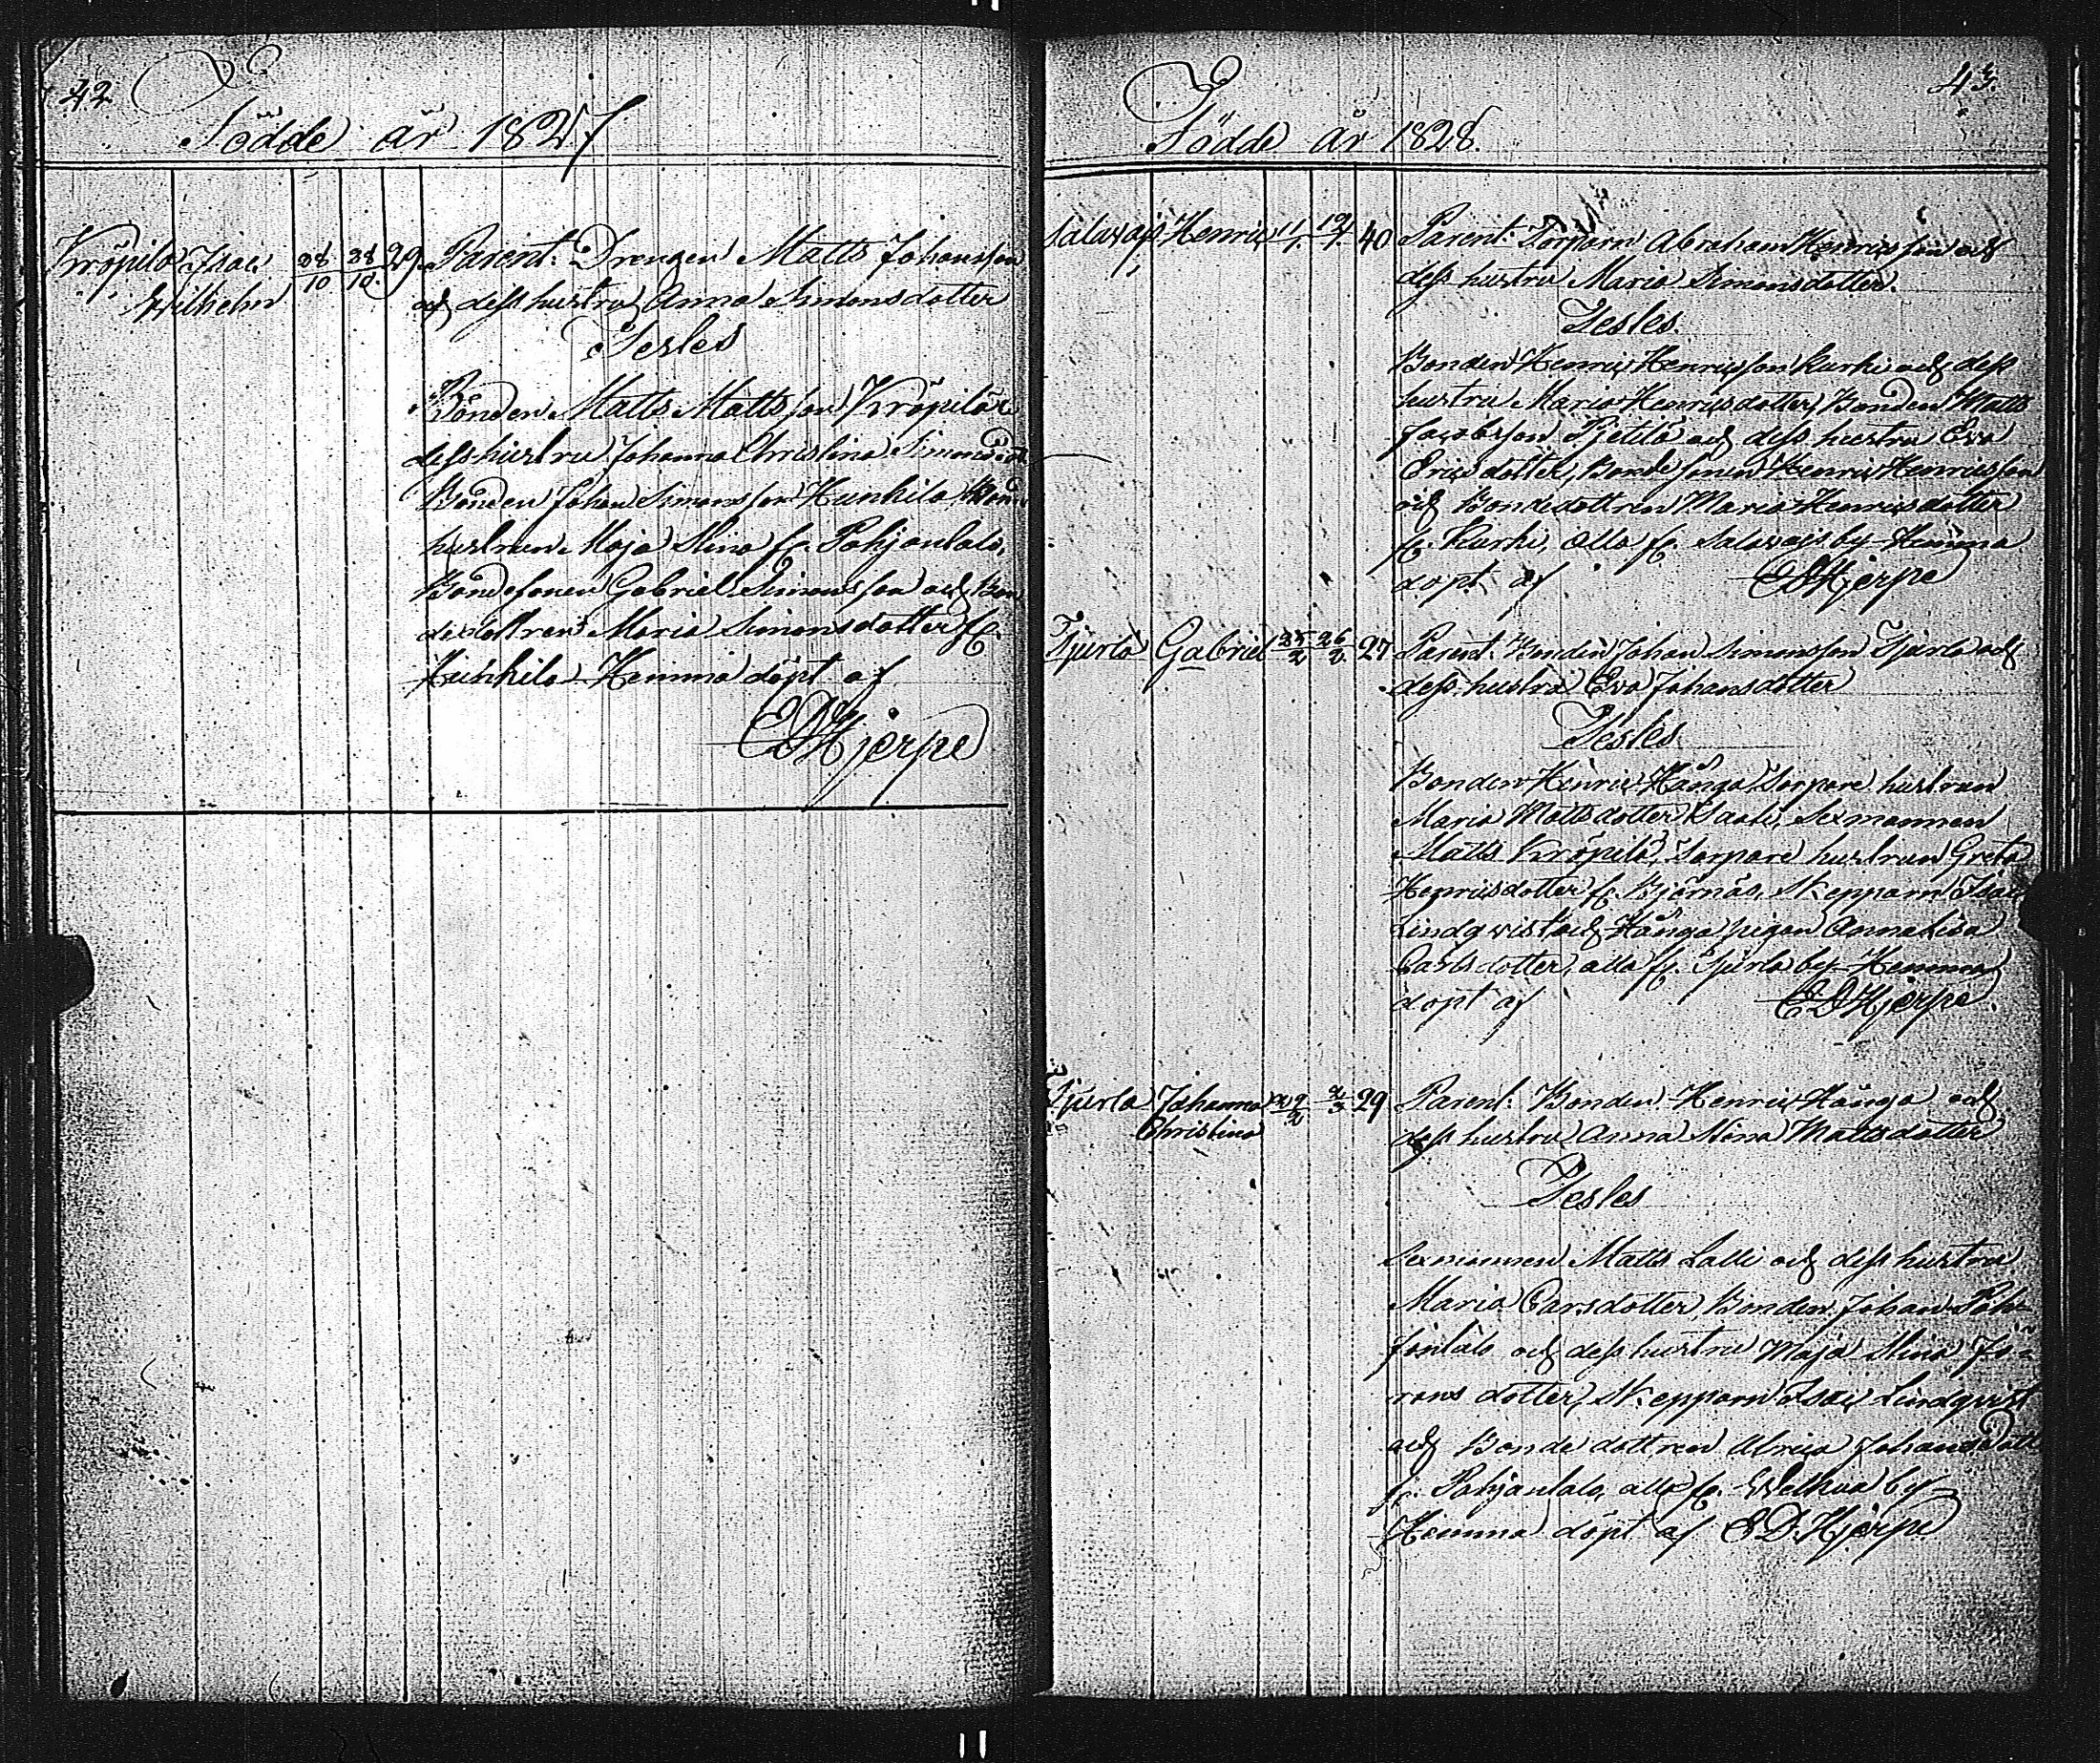 42.
Födde år 1827
Kröpilä Isac 28/10 28/10 29. Parent. Drengen Matts Johansson
Wilhelm och dess hustru Anna Simonsdotter
Testes
Bonden Matts Mattsson Kröpilä o
dess hustru Johanna Christina Simonsdotr
Bonden Johan Simonsson Hunkila, Bonde
hustrun Maja Stina fr. Pohjantalo,
Bondesonen Gabriel Simonsson och Bon
dedottren Maria Simonsdotter fr.
Hunkila Hemma döpt af
EDHjerpe
43.
Födde år 1828.
Salavajs Henric 11/1 12/1 40 Parent. Torparn Abraham Henricsson och
dess hustru Maria Simonsdotter.
Testes.
Bonden Henric Henricsson Kurki och dess
hustru Maria Henricsdotter, Bonden Matts
Jacobsson Pjetilä och dess hustru Eva
Ericsdotter, Bondesonen Henric Henricsson
och Bondedottren Maria Henricsdotter
fr. Kurki, alla fr. Salavajs by Hemma
döpt af EDHjerpe
Tjurla Gabriel 25/2 26/2 27 Parent. Bonden Johan Simonsson Tjurla och
dess hustru Eva Johansdotter
Testes
Bonden Henric Hånga Torpare hustrun
Maria Mattsdotter Kaati, Sexmannen
Matts Kröpilä, Torpare hustrun Greta
Henricsdotter fr. Björnäs, Skepparn Isac
Lindqvist och Hånga pigan Anna Lisa
Carlsdotter, alla fr. Tjurla by Hemma
döpt af EDHjerpe
Tjurla Johanna 29/2 2/3 29 Parent. Bonden Henric Hånga och
Christina dess hustru Anna Stina Mattsdotter
Testes
Sexmannen Matts Lalli och dess hustru
Maria Carsdotter, Bonden Johan Poh-
jontalo och dess hustru Maja Stina Jö-
rans dotter, Skepparn Isac Lindqvist
och Bonde dottren Ulrica Johansdott
fr. Pohjantalo, alla fr. Welhua by
Hemma döpt af EDHjerpe